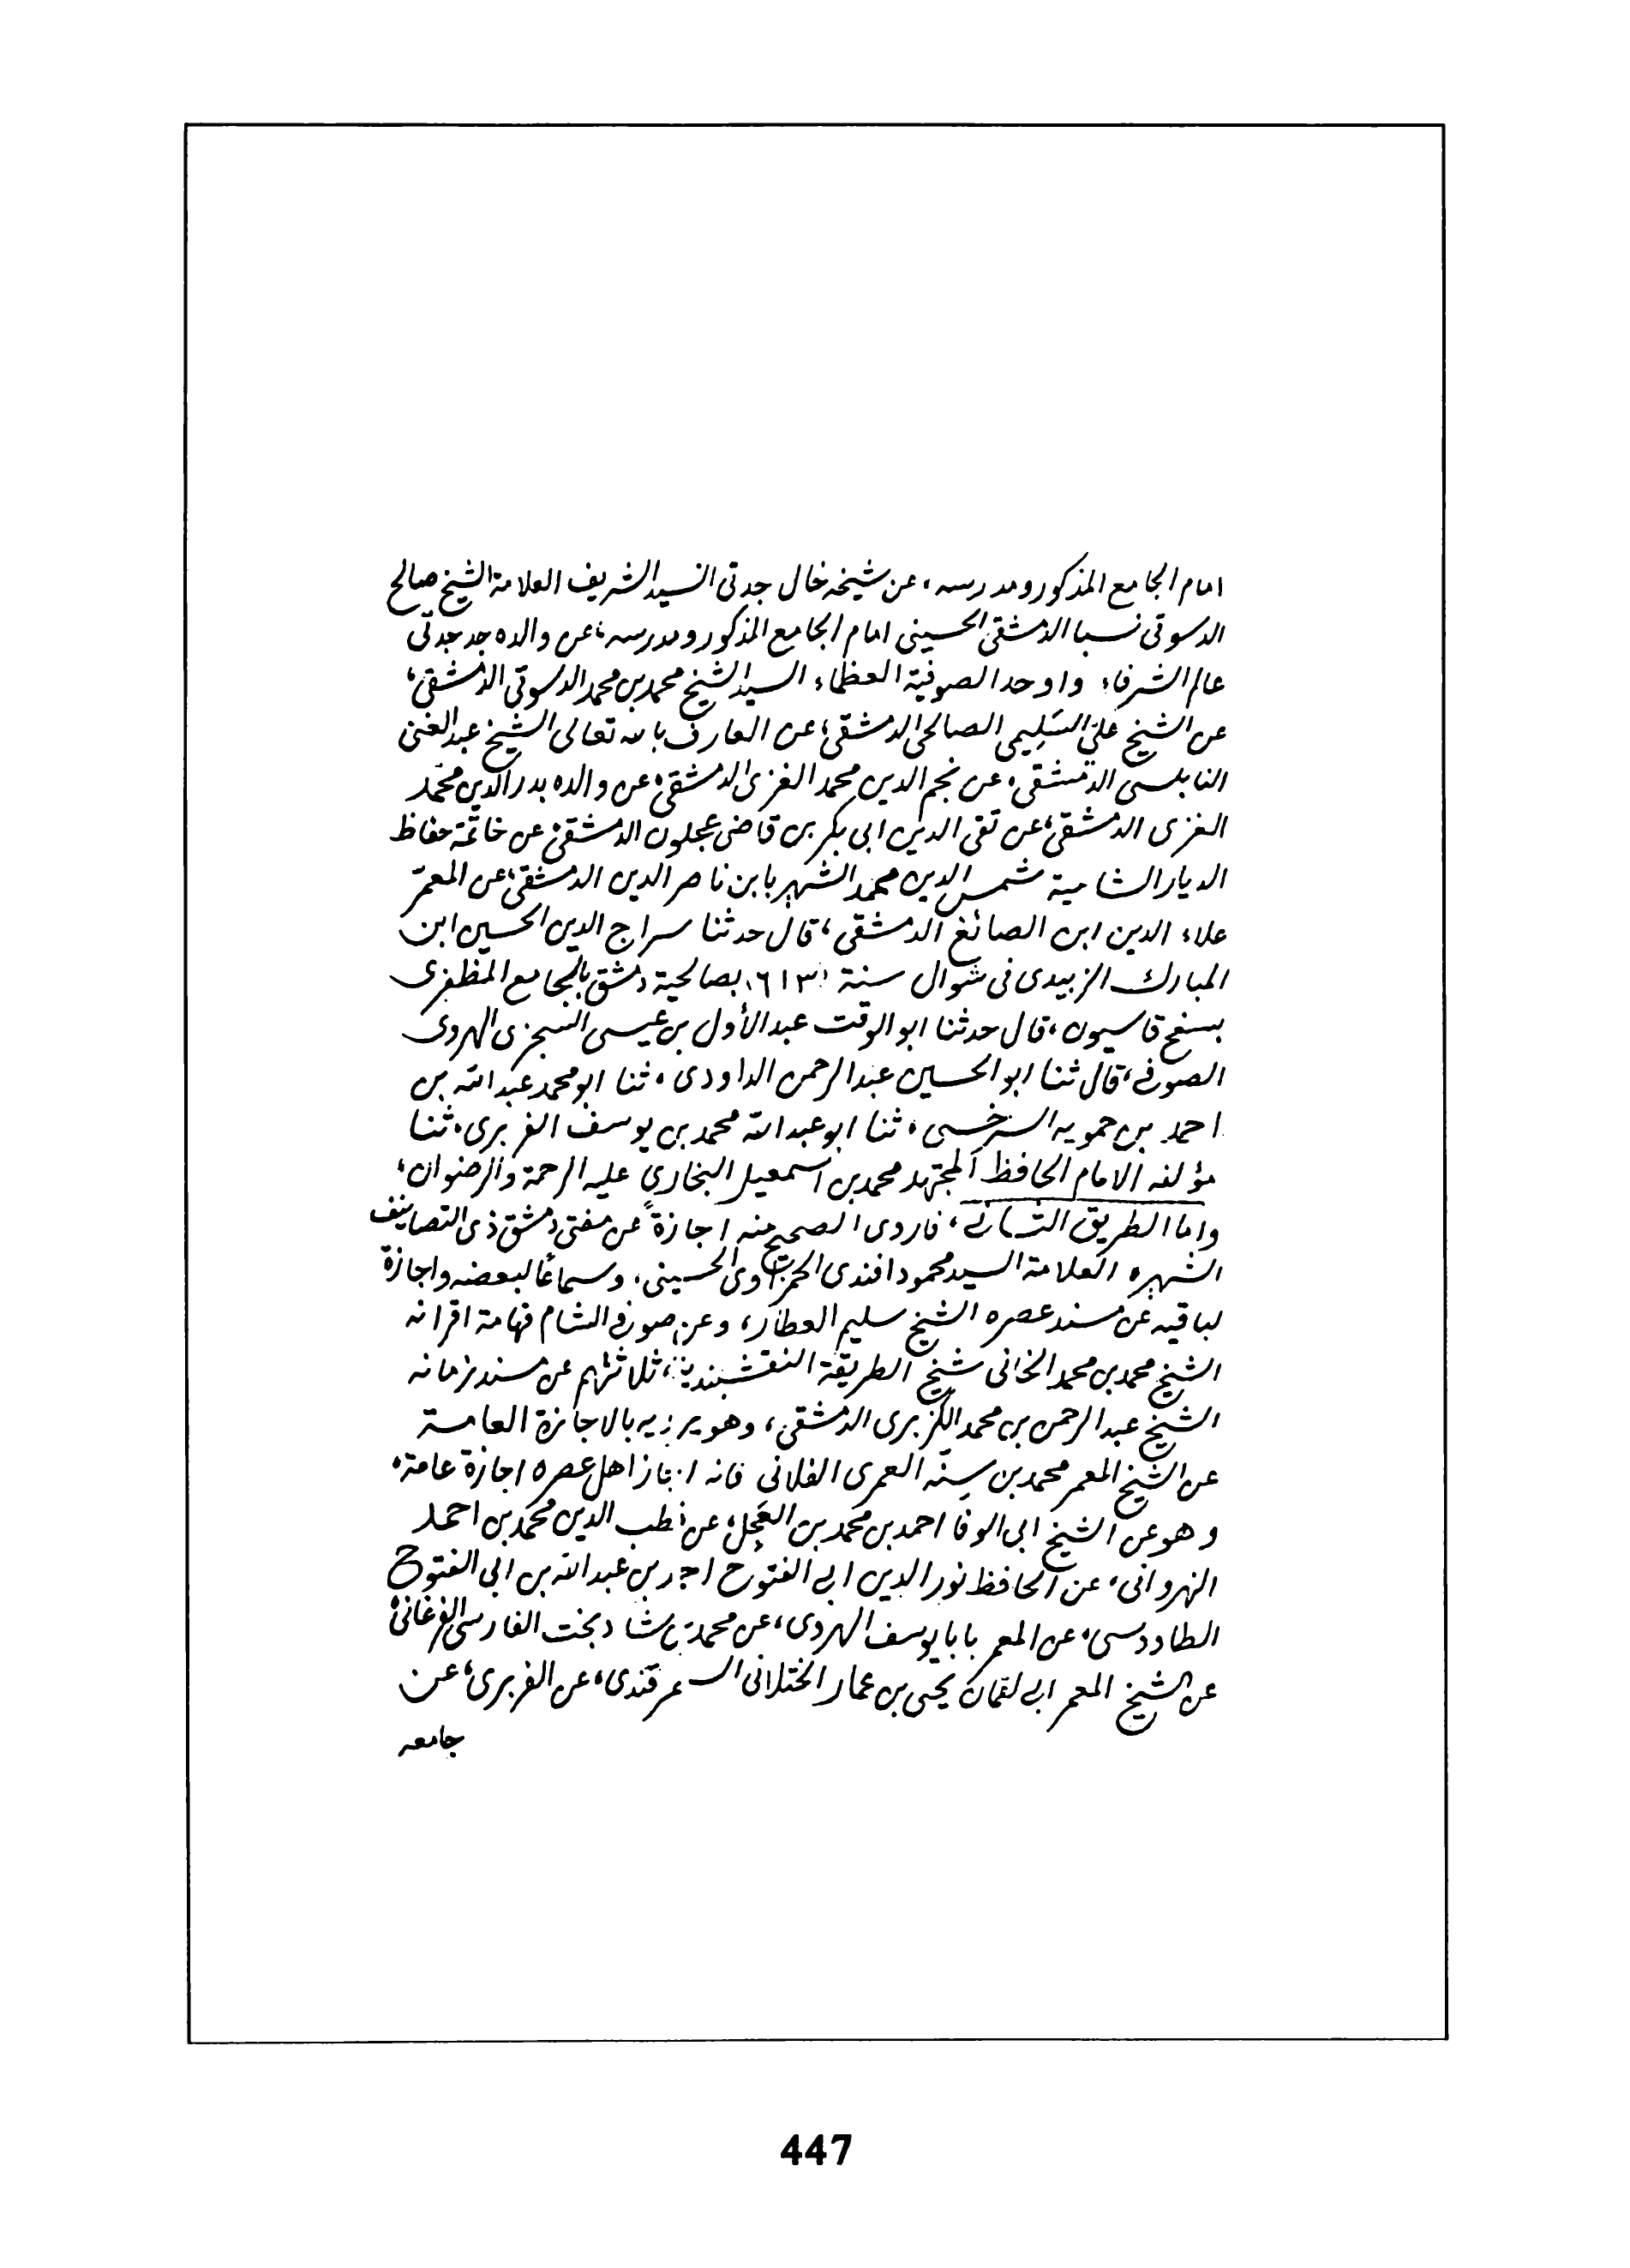 امام الجامع المذكور ومدرسه، عن شيخه خال جدتى السيد الشريف العلامة الشيخ صالح
الدسوقى نسبا الدمشقى الحسينى امام الجامع المذكور ومدرسه، عن والده جد جدتى
عالم الشرفاء واوحد الصوفية العظماء السيد الشيخ محمد بن محمد الدسوقى الدمشقى،
عن الشيخ على السَلِيمى الصالحى الدمشقى، عن العارف بالله تعالى الشيخ عبد الغنى
النابلسى الدمشقى، عن نجم الدين محمد الغزى الدمشقى، عن والده بدر الدين محمّد
الغزى الدمشقى، عن تقى الدين ابى بكر بن قاضى عجلون الدمشقى، عن خاتمة حفاظ
الديار الشامية شمس الدين محمد الشهير بابن ناصر الدين الدمشقى، عن المعمّر
علاء الدين ابن الصائغ الدمشقى، قال حدثنا سراج الدين الحسين ابن
المبارك الزبيدى فى شوال سنة ٦١٣، بصالحية دمشق بالجامع المظفرى
بسفح قاسيون، قال حدثنا ابو الوقت عبد الأول بن عيسى السجزى الهروى
الصوفى، قال ثنا ابو الحسين عبد الرحمن الداودى، ثنا ابو محمد عبد الله بن
احمد بن حمويه السرخسى، ثنا ابو عبد الله محمد بن يوسف الفربرى، ثنا
مؤلفه الامام الحافظ المجتهد محمد بن اسمعيل البخارى عليه الرحمة والرضوان،
واما الطريق الثانى، فاروى الصحيح منه اجازةً عن مفتى دمشق ذى التصانيف
الشهيره العلامة السيد محمود افندى الحمزاوى الحسينى، وسماعًا لبعضه واجازةً
لباقيه عن مسند عصره الشيخ سليم العطار، وعن صوفى الشام فهامة اقرانه
الشيخ محمد بن محمد الخانى شيخ الطريقة النقشبندية، ثلاثتهم عن مسند زمانه
الشيخ عبد الرحمن بن محمد الكزبرى الدمشقى، وهو يرويه بالاجازة العامة
عن الشيخ المعمر محمد بن سِنّه العمرى الفلانى فانه اجاز اهل عصره اجازة عامة،
وهو عن الشيخ ابى الوفا احمد بن محمد بن العَجِل، عن قطب الدين محمد بن احمد
النهروانى، عن الحافظ نور الدين ابى الفتوح احمد بن عبد الله بن ابى الفتوح
الطاوسى، عن المعمر بابا يوسف الهروى، عن محمد بن شاد بخت الفارسى الفرغانى،
عن الشيخ المعمر ابى لقمان يحيى بن عمار الختلانى السمرقندى، عن الفربرى، عن
جامعه
447